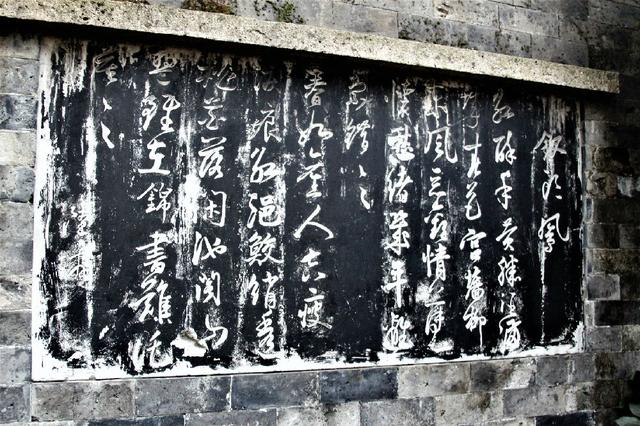 釵頭鳳
紅酥手黃縢酒滿
城春色宮牆柳
東風惡歡情薄一
懷愁緒幾年離
索錯〻〻
春如舊人空瘦
淚痕紅浥鮫綃透
桃花落閑池閣山
盟雖在錦書難託
莫〻〻